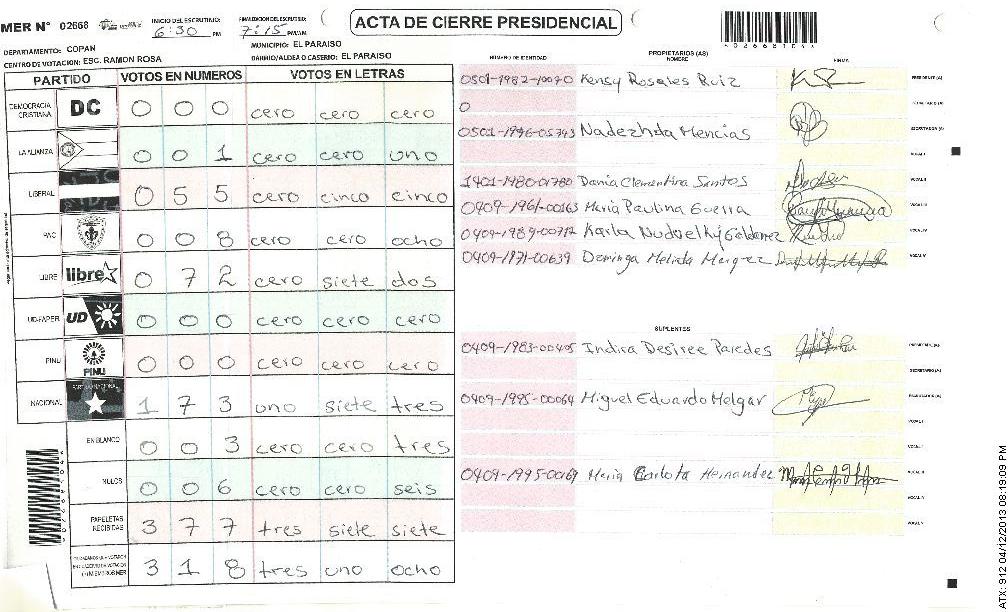 MER N° 02668
INICIO DEL ESCRUTINIO: 6:30 PM
FINALIZACION DEL ESCRUTINIO: 7:15 PM/AM
ACTA DE CIERRE PRESIDENCIAL
DEPARTAMENTO: COPAN
MUNICIPIO: EL PARAISO
CENTRO DE VOTACION: ESC. RAMON ROSA
BARRIO/ALDEA O CASERIO: EL PARAISO
PARTIDO VOTOS EN NUMEROS VOTOS EN LETRAS
DEMOCRACIA CRISTIANA DC 0 0 0 cero cero cero
LA ALIANZA 0 0 1 cero cero uno
LIBERAL 0 5 5 cero cinco cinco
PAC 0 0 8 cero cero ocho
LIBRE libre 0 7 2 cero siete dos
UD-FAPER UD 0 0 0 cero cero cero
PINU PINU 0 0 0 cero cero cero
NACIONAL 1 7 3 uno siete tres
EN BLANCO 0 0 3 cero cero tres
NULOS 0 0 6 cero cero seis
PAPELETAS RECIBIDAS 3 7 7 tres siete siete
3 1 8 tres uno ocho
NUMERO DE IDENTIDAD
PROPIETARIOS (AS)
NOMBRE
FIRMA
0501-1982-10070 Kensy Rosales Ruiz PRESIDENTE (A)
0 SECRETARIO (A)
0501-1996-05743 Nadezhda Mencias ESCRUTADOR (A)
VOCAL I
1401-1980-01780 Dania Clementina Santos VOCAL II
0409-1961-00163 Maria Paulina Guerra VOCAL III
0409-1989-00712 Karla VOCAL IV
0409-1971-00639 Dominga VOCAL V
SUPLENTES
0409-1983-00405 Indira Desiree Paredes PRESIDENTE (A)
SECRETARIO (A)
0409-1995-00064 Miguel Eduardo Melgar ESCRUTADOR (A)
VOCAL I
VOCAL II
0409-1995-00169 Maria Carlota Hernandez VOCAL III
VOCAL IV
VOCAL V
ATX: 912 04/12/2013 08:19:09 PM